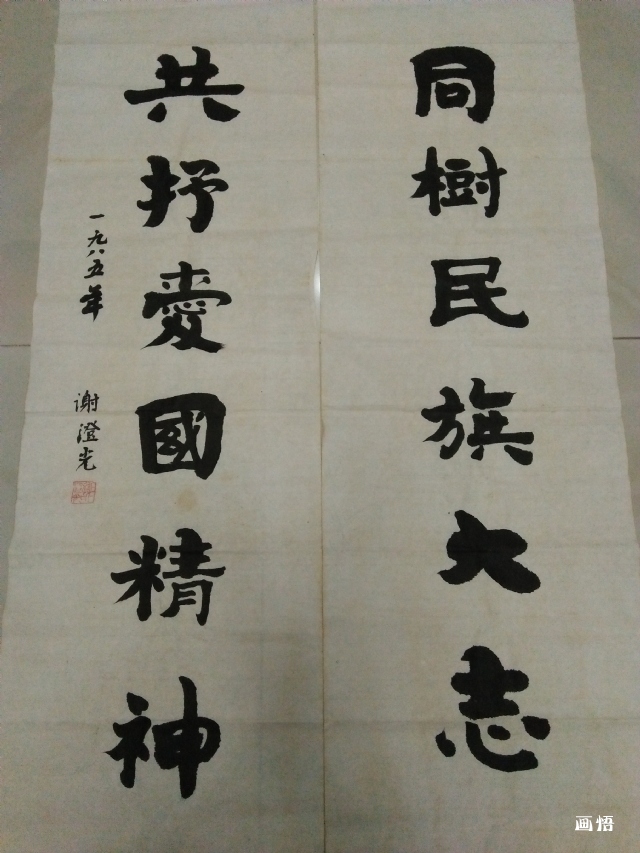 同樹民族大志
共抒愛國精神
一九八五年
谢澄光
画悟